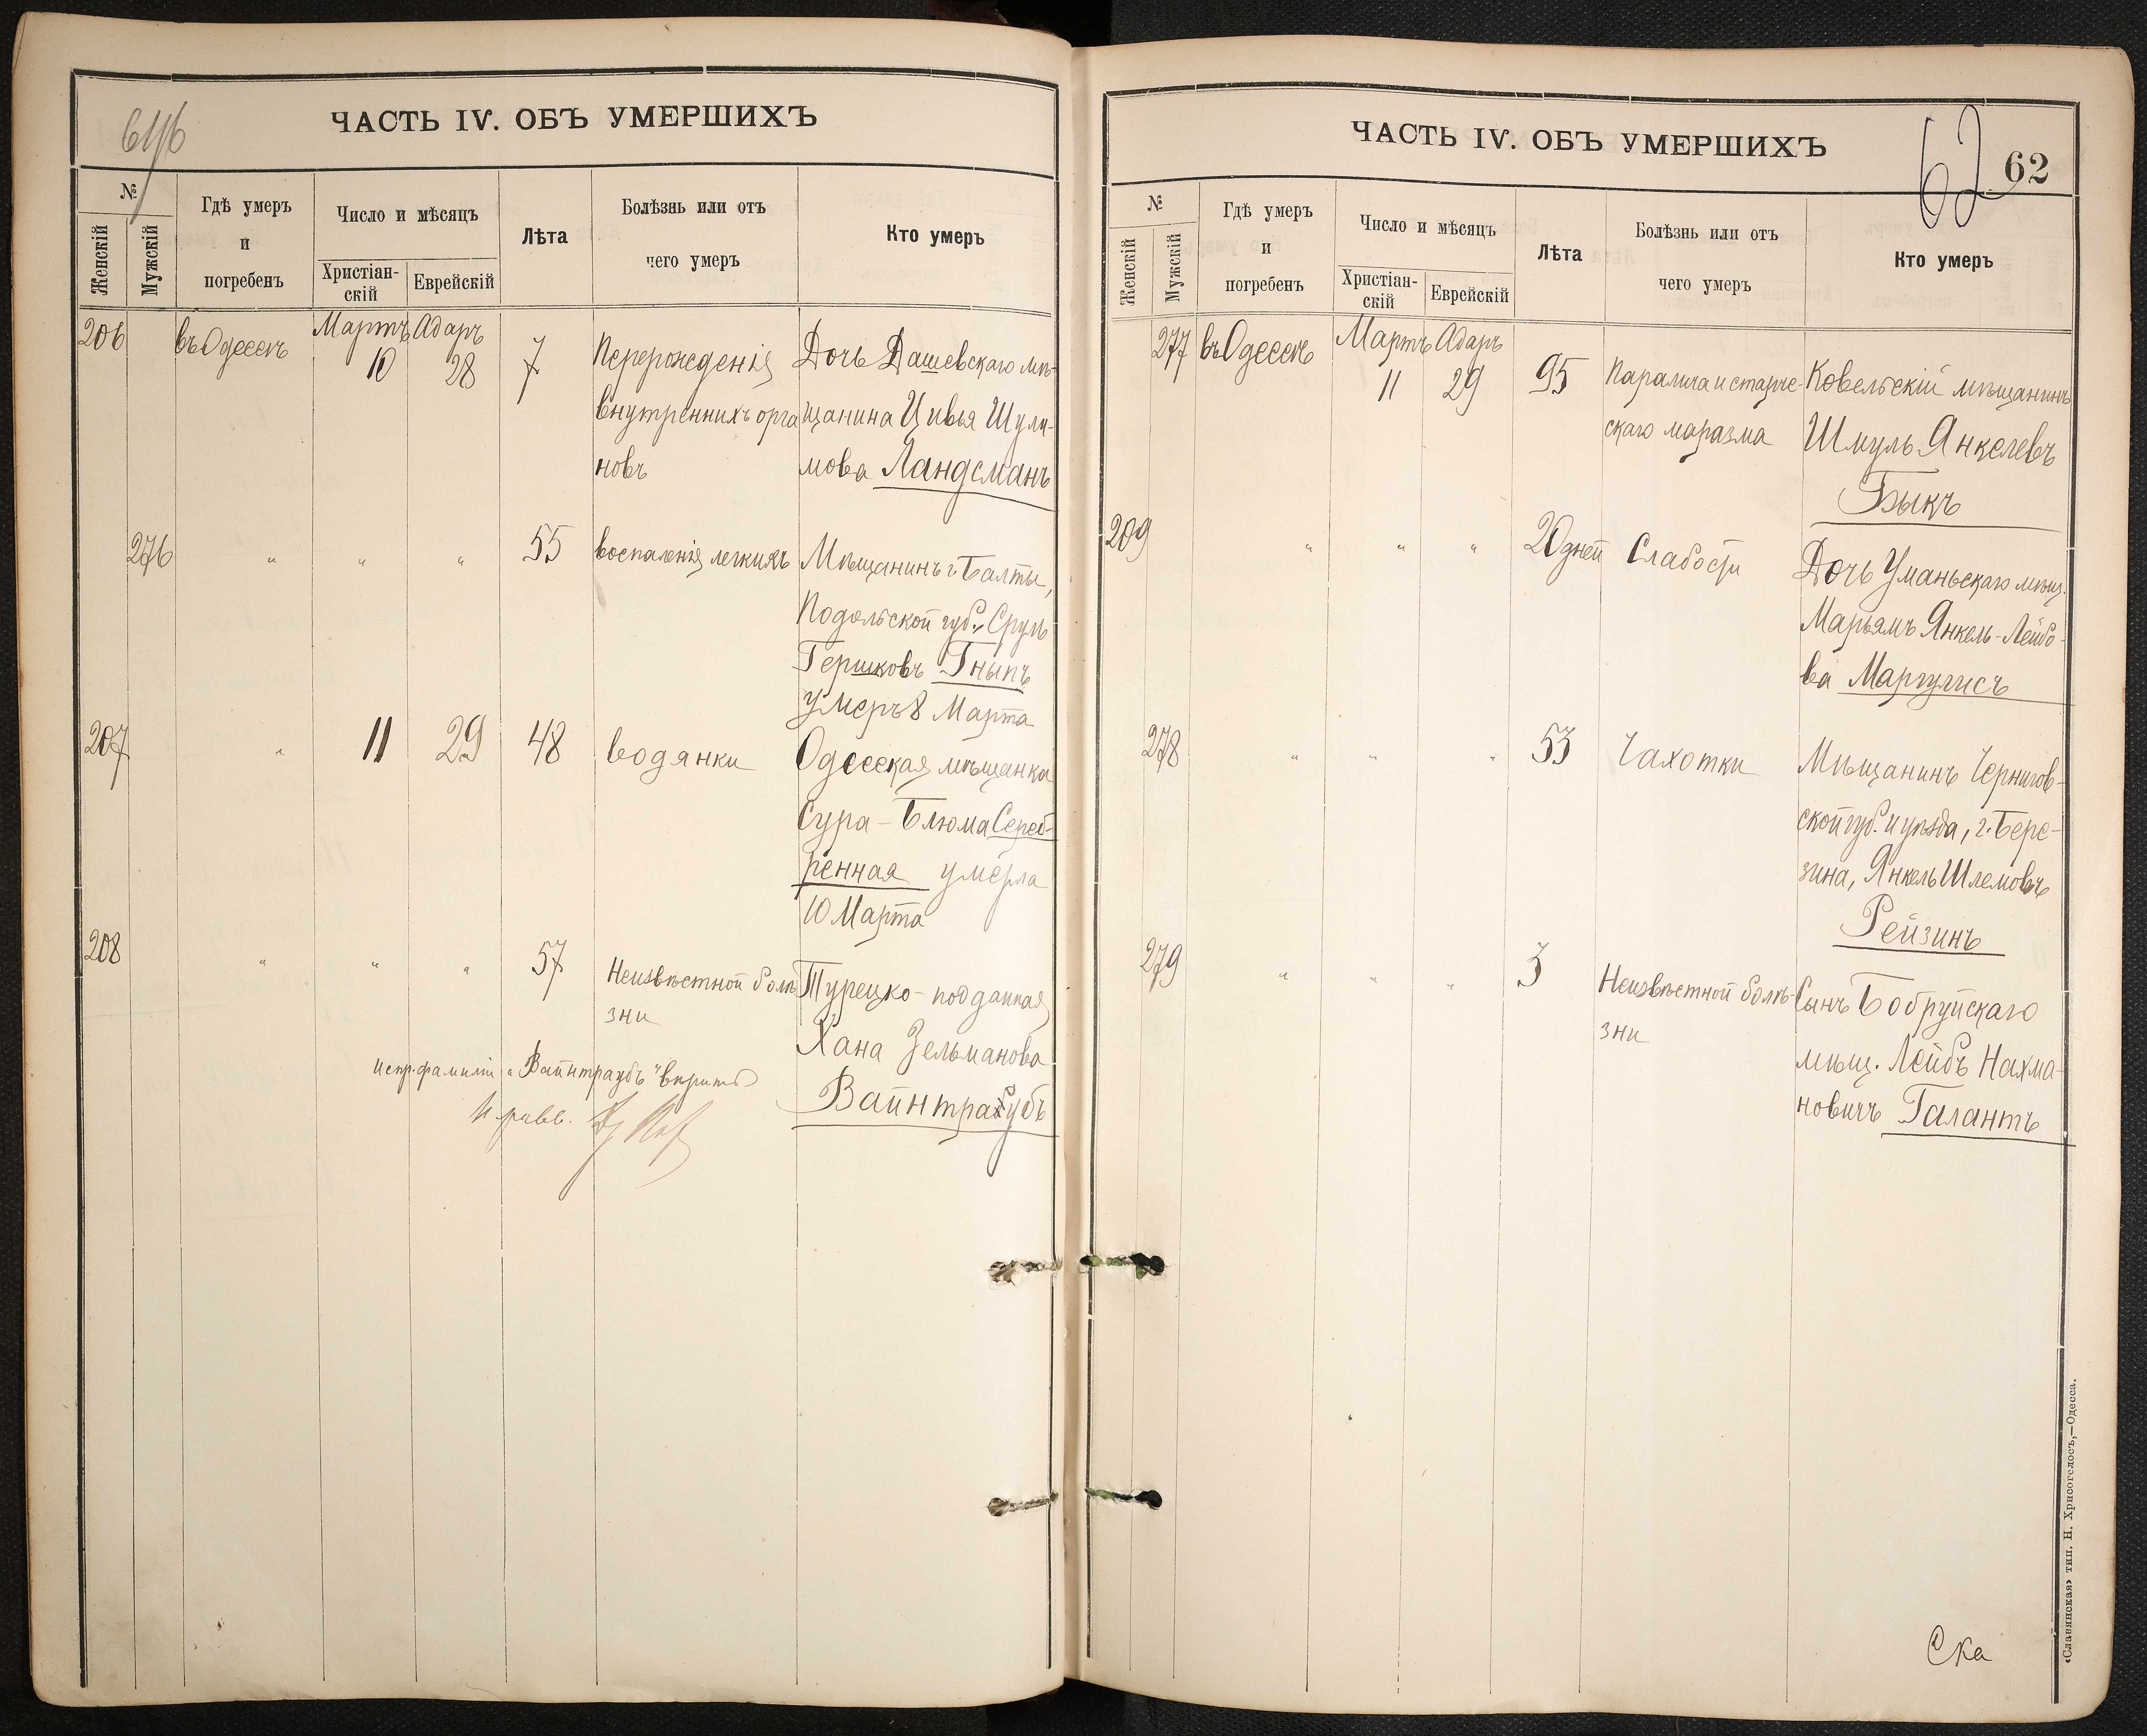 61/б
ЧАСТЬ IV. ОБЪ УМЕРШИХЪ
№
Женскій
Мужскій
Гдѣ умеръ
и
погребенъ
Число и мѣсяцъ
Христіан-
скій
Еврейскій
Лѣта
Болѣзнь или отъ
чего умеръ
Кто умеръ
206 въ Одессѣ Мартъ 10 Адаръ 28 7
Перерожденія
внутреннихъ орга
новъ
Дочь Дашевскаго мѣ-
щанина Цивья Шули-
мова Ландсманъ
276 " " " 55 воспаленія легкихъ
Мѣщанинъ г. Балты,
Подольской губ., Сруль
Гершковъ Гныпъ
умеръ 8 Марта
207 " 11 29 48 водянки
Одесская мѣщанка
Сура-Блюма Сереб-
ренная умерла
10 Марта
208 " " " 57
Неизвѣстной болѣ
зни
Турецко-подданная
Хана Зельманова
Вайнтраубъ
испр. фамиліи "Вайнтраубъ" вѣрить
И. равв.
ЧАСТЬ IV. ОБЪ УМЕРШИХЪ
62 62
№
Женскій
Мужскій
Гдѣ умеръ
и
погребенъ
Число и мѣсяцъ
Христіан-
скій
Еврейскій
Лѣта
Болѣзнь или отъ
чего умеръ
Кто умеръ
277 въ Одессѣ Мартъ 11 Адаръ 29 95
Паралича и старче-
скаго маразма
Ковельскій мѣщанинъ
Шмуль Янкелевъ
Быкъ
209 " " " 20 дней Слабости
Дочь Уманьскаго мѣщ.
Марьямъ Янкель-Лейбо-
ва Маргулисъ
278 " " " 53 Чахотки
Мѣщанинъ Чернигов-
ской губ. и уѣзда, г. Бере-
зина, Янкель Шлемовъ
Рейзинъ
279 " " " 3
Неизвѣстной болѣ-
зни
Сынъ Бобруйскаго
мѣщ. Лейбъ Нахма-
новичъ Галантъ
Ска
«Славянская» тип. Н. Хрисогелосъ,—Одесса.